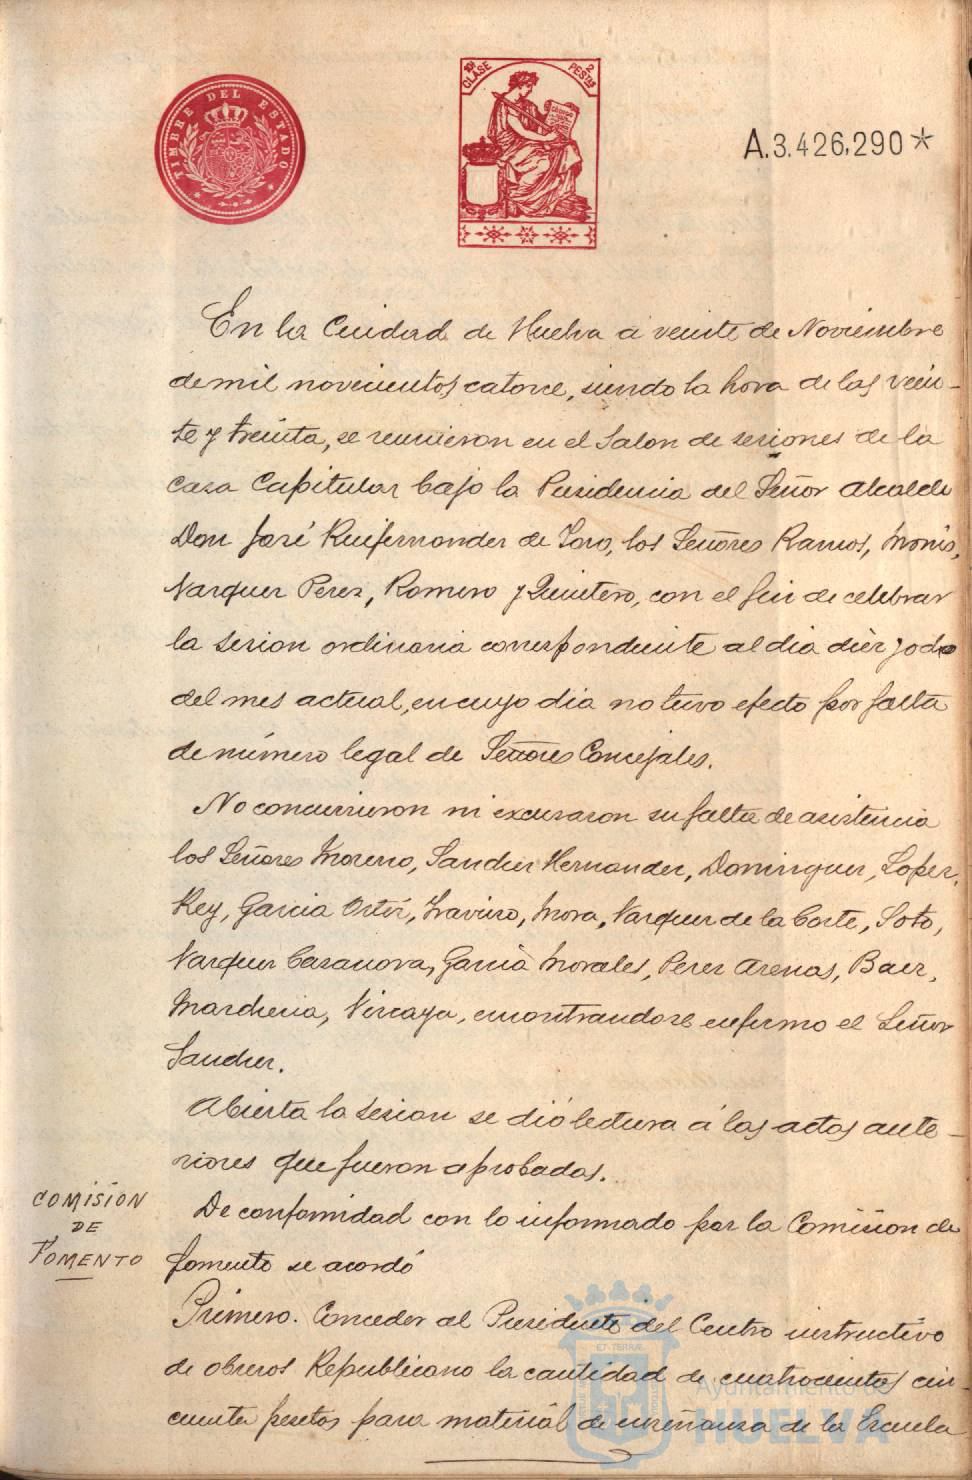 TIMBRE DEL ESTADO
10ª CLASE
2 PESTAS
A.3.426,290*
En la Ciudad de Huelva á veinte de Noviembre
de mil novecientos catorce, siendo la hora de las vein-
te y treinta, se reunieron en el Salon de sesiones de la
Casa Capitular bajo la Presidencia del Señor Alcalde
Don José Ruifernandez de Toro, los Señores Ramos, Monis,
Vazquez Perez, Romero y Quintero, con el fin de celebrar
la sesion ordinaria correspondiente al dia diez y ocho
del mes actual, en cuyo dia no tuvo efecto por falta
de número legal de Señores Concejales.
No concurrieron ni excusaron su falta de asistencia
los Señores Moreno, Sanchez Hernandez, Dominguez, Lopez,
Rey, Garcia Ortiz, Traviso, Mora, Vazquez de la Corte, Soto,
Vazquez Casanova, Garcia Morales, Perez Arenas, Baez,
Marchena, Vizcaya, encontrandose enfermo el Señor
Sanchez.
Abierta la sesion se dió lectura á las actas ante-
riores que fueron aprobadas.
COMISION
DE
FOMENTO
De conformidad con lo informado por la Comision de
fomento se acordó
Primero. Conceder al Presidente del Centro instructivo
de obreros Republicano la cantidad de cuatrocientas cin-
cuenta pesetas para material de enseñanza de la Escuela
ET TERRÆ
Ayuntamiento de
HUELVA